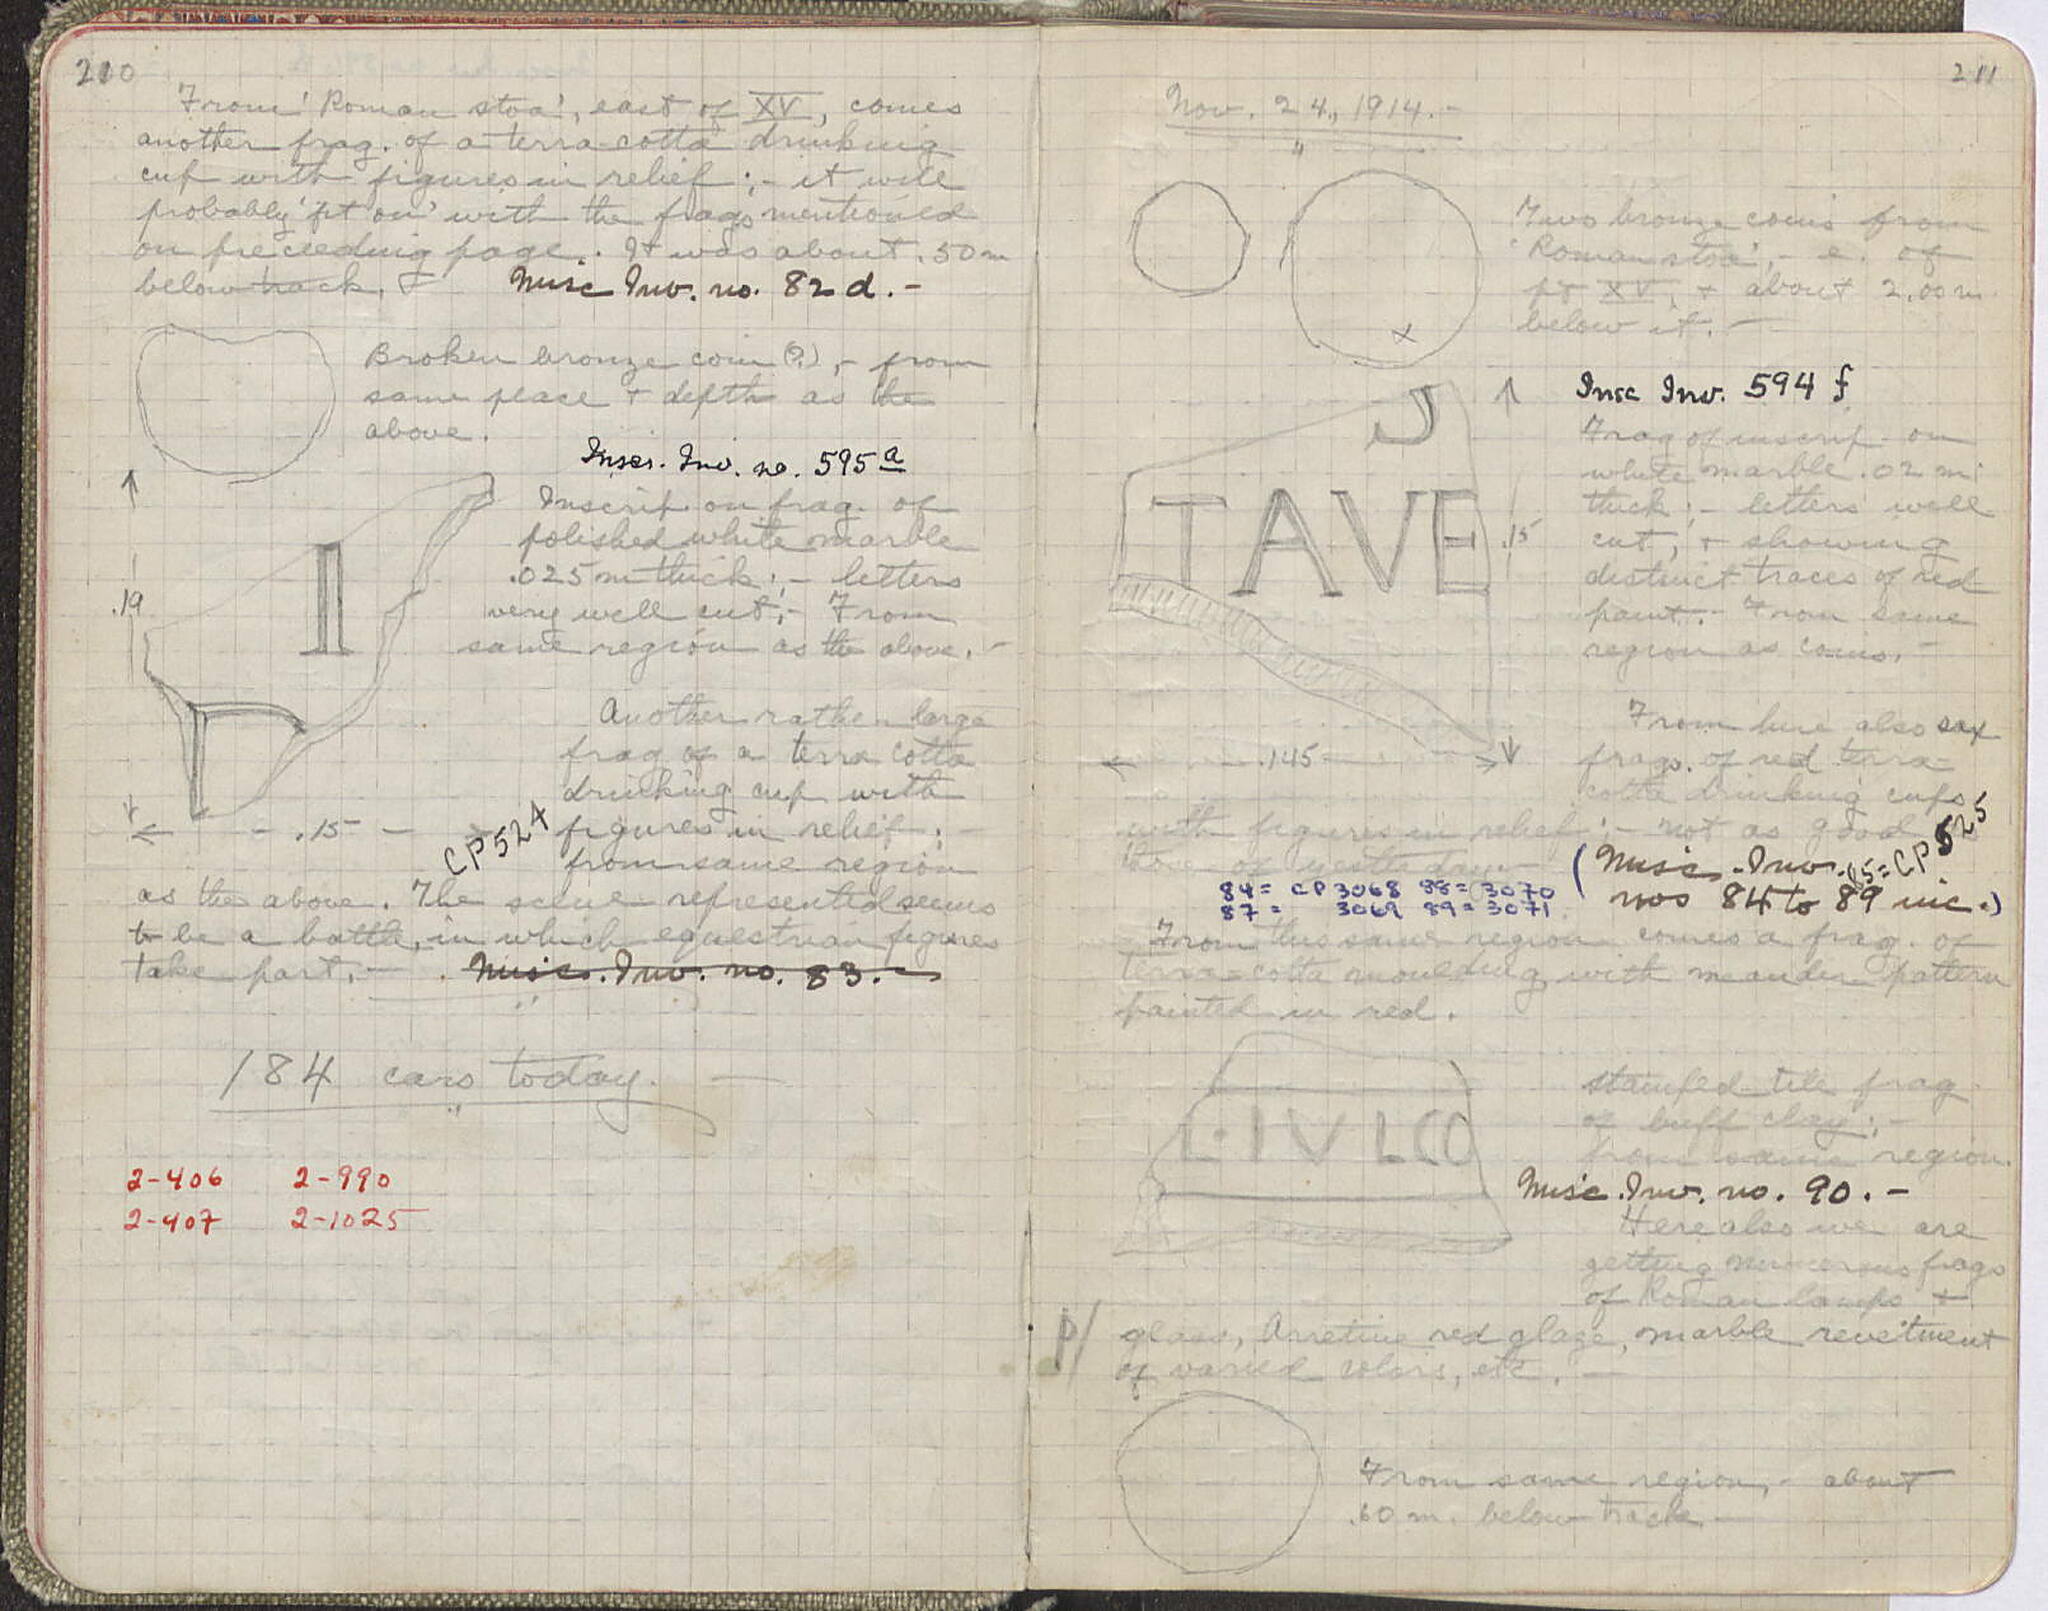 210
From 'Roman stoa', east of XV, comes
another frag. of a terra-cotta drinking
cup with figures in relief; - it will
probably 'fit on' with the frags mentioned
on preceeding page. It was about .50 m
below track.
Misc Inv. no. 82 d. -
Broken bronze coin (?), - from
same place + depth as the
above.
Inscr. Inv. no. 595 a
Inscrip. on frag. of
polished white marble
.025 m thick; - letters
very well cut; - From
same region as the above. -
I
.19
.15
Another rather large
frag of a terra cotta
drinking cup with
figures in relief;
CP 524
from same region
as the above. The scene represented seems
to be a battle, in which equestrian figures
take part. - Misc. Inv. no. 83. -
184 cars today. -
2-406 2-990
2-407 2-1025
211
Nov. 24, 1914. -
Two bronze coins from
'Roman stoa', - e. of
pt XV, + about 2.00 m
below it. -
x
Insc Inv. 594 f
Frag of inscrip on
white marble .02 m
thick; - letters well
cut, + showing
distinct traces of red
paint. - From same
region as coins. -
TAVE
.15
.145
From here also six
frags. of red terra-
cotta drinking cups
with figures in relief; - not as good as
those of yesterday -
(Misc. Inv. 85 = CP 525
nos 84 to 89 inc.)
84 = CP 3068 88 = 3070
87 = 3069 89 = 3071
From this same region comes a frag. of
terra-cotta moulding with meander pattern
painted in red.
L·IVLCO
stamped tile frag
of buff clay; -
from same region.
Misc. Inv. no. 90. -
Here also we are
getting numerous frags
of Roman lamps +
P/
glass, Arretine red glaze, marble revetment
of varied colors, etc. -
From same region, - about
.60 m. below track -